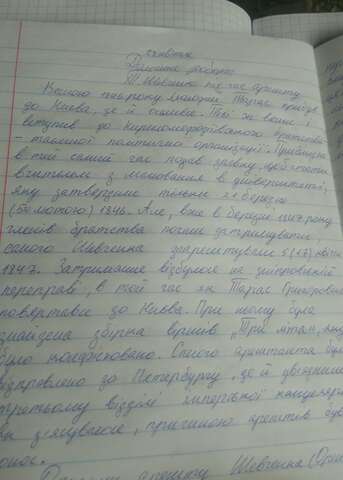 Домашня робота
Т.Г. Шевченко під час арешту
Весною того року молодий Тарас приїхав
до Києва, де й оселився. Тоді ж восни і
вступив до Кирило-Мефодіївського братства
– таємної політичної організації. Приблизно
в той самий час подав заявку, щоб стати
вчителем з малювання в університеті,
яку затвердили тільки 21 березня
(5 лютого) 1846. Але, вже в березні 1847 року
членів братства почали затримувати,
самого Шевченка заарештували 5 (17) квітня
1847. Затримання відбулося на дніпровській
переправі, в той час як Тарас Григорович
повертався до Києва. При ньому була
знайдена збірка віршів „Три літа", яку
було конфісковано. Самого арештанта було
відправлено до Петербургу, де й ув'язнили
третьому відділі імперської канцелярії
як з'ясувалося, причиною арештів був
донос.
арешту Шевченка